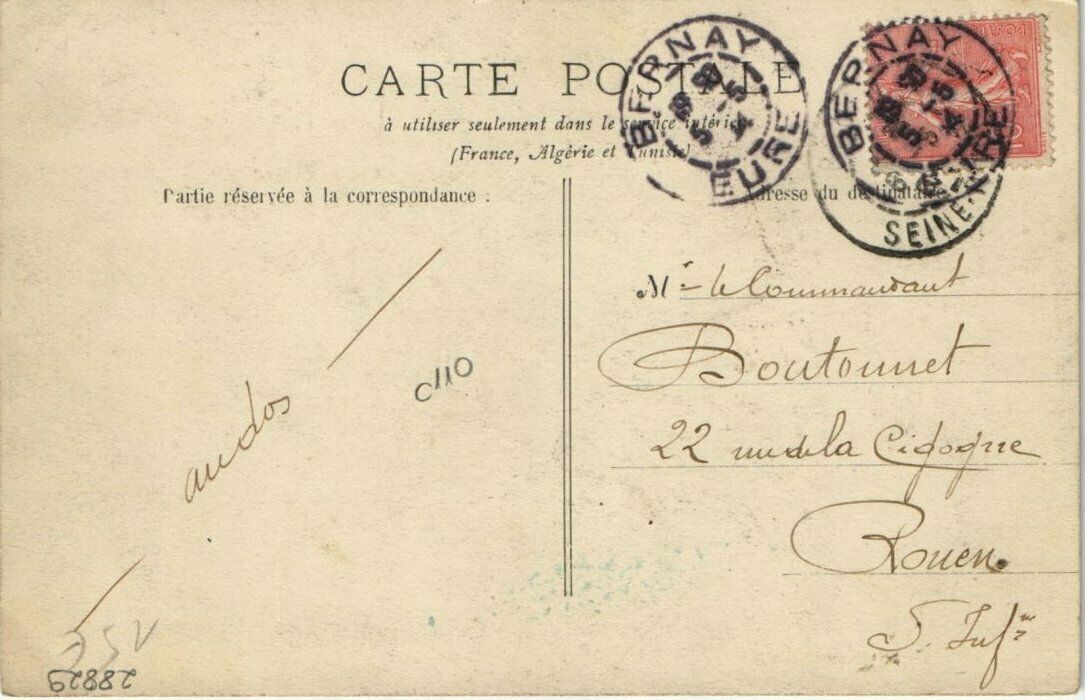 CARTE POSTALE
à utiliser seulement dans le service intérieur
(France, Algérie et Tunisie)
BERNAY
EURE
BERNAY
EURE
SEINE
Partie réservée à la correspondance :
Adresse du destinataire
Mr - le Commandant
Boutonnet
22 rue de la Cigogne
Rouen.
S. Infre
au dos
0110
25V
28829